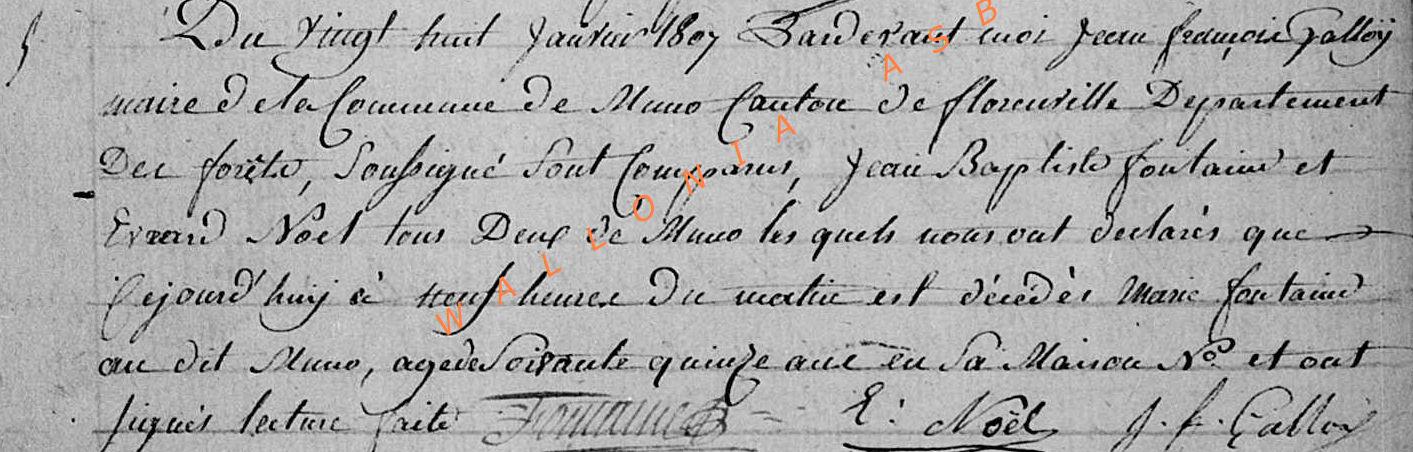 5 Du vingt huit Janvier 1807 Pardevant moi Jean françois Galloÿ
maire de la Commune de Muno Canton de florenville Departement
Des forêts, soussigné sont Comparus, Jean Baptiste fontaine et
Evrard Noël tous Deux de Muno lesquels nous ont declarés que
Cejourd'huy à neuf heures du matin est décédés Marie fontaine
au dit Muno, agede Soixante quinze ans en sa Maison No. et ont
signés lecture faite Fontaine E: Noël J. f. Galloÿ
WALLONIA ASB